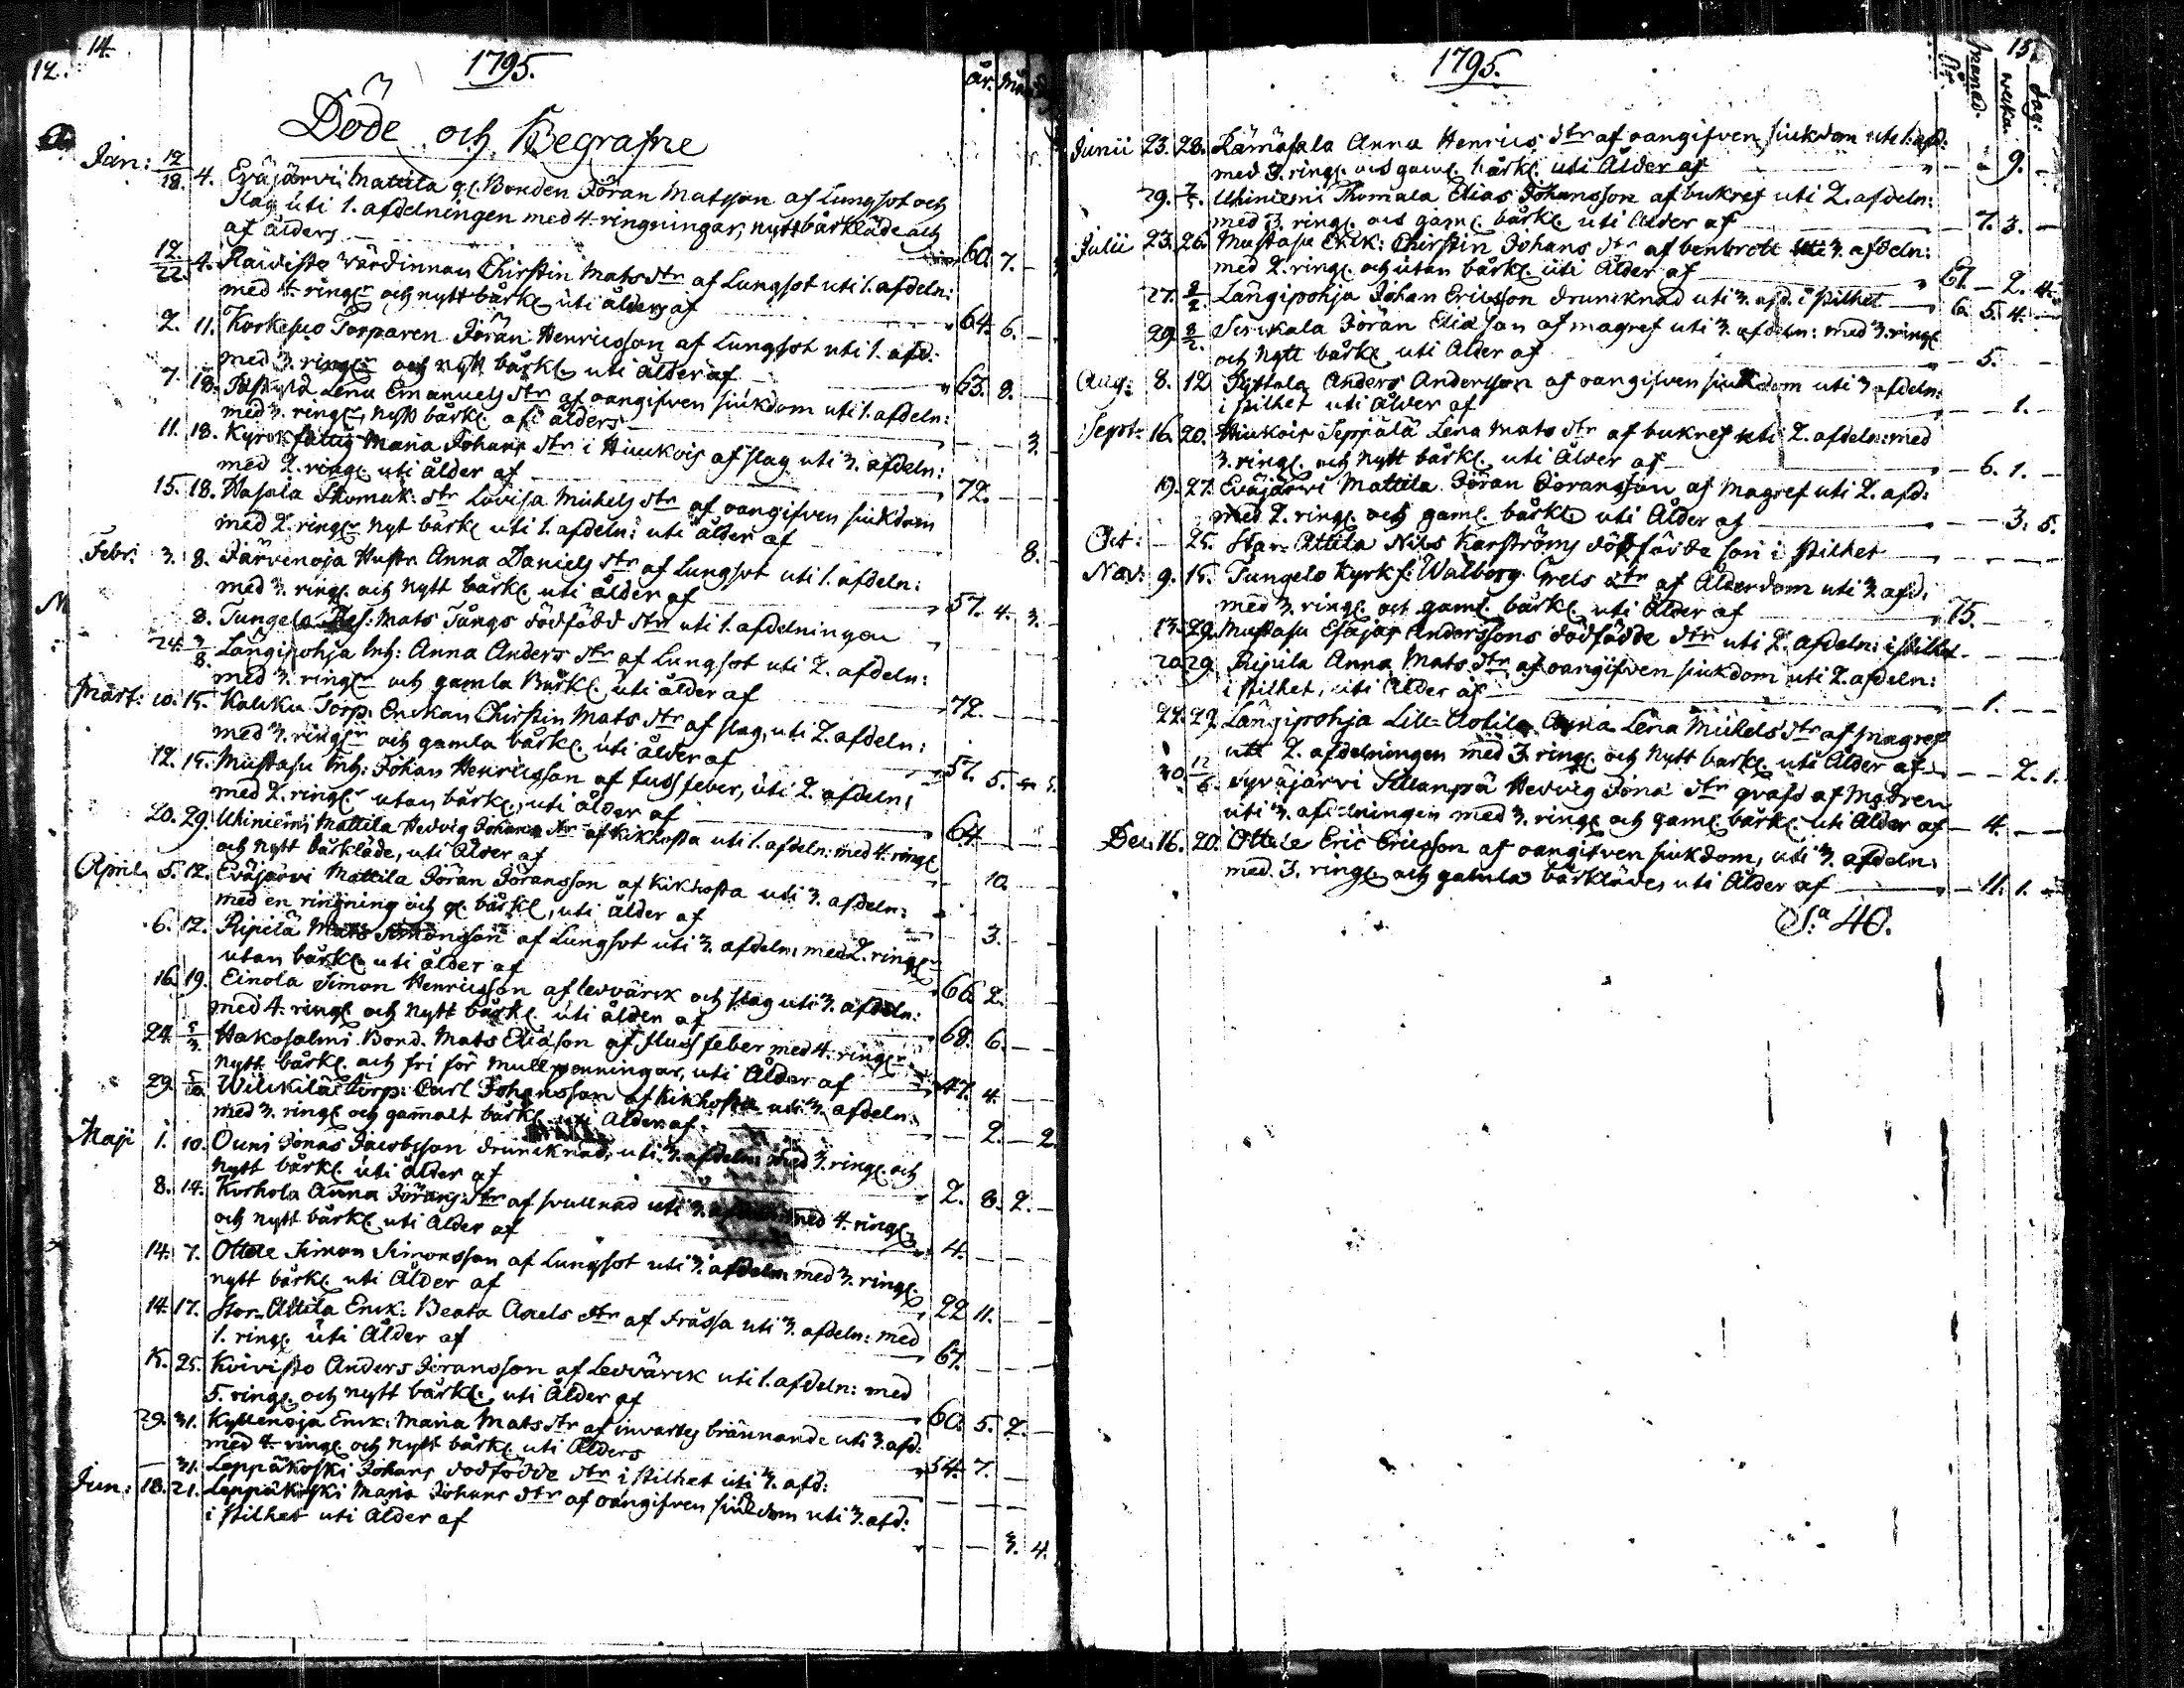 14.
12.
1795.
år. Mån
Döde och Begrafne
Jan: 12/18. 4. Eväjärvi Mattila gl. Bonden Jöran Matsson af Lungsot och
slag uti 1. afdelningen med 4 ringningar, nytt bårkläde och
af ålders 60. 7. –
12./22. 4. Värdinnan Christin Mats dtr af Lungsot uti 1. afdeln:
med 4. ringr och nytt bårkl. uti ålders af 64. 6. –
2. 11. Torparen Jöran Henricsson af Lungsot uti 1. afd:
med 3. ringr och nytt bårkl. uti ålder af 63. 8.
7. 18. Lena Emanuels dtr af oangifven siukdom uti 1. afdeln:
med 3. ringr, nytt bårkl. af ålders – – 3. –
11. 18. Kyrckfattig Maria Johans dtr i Hiukois af slag uti 3. afdeln:
med 2. ringl. uti ålder af 72. – –
15. 18. Hasala dtr Lovisa Michels dtr af oangifven siukdom
med 2. ringr nytt bårkl uti 1. afdeln: uti ålder af 8. –
Febr: 3. 8. Järvenoja Hustr. Anna Daniels dtr af Lungsot uti 1. afdeln:
med 3. ringl. och nytt bårkl. uti ålder af 57. 4. 3. –
8. Tungelo Mats Tångs dödfödd dtr uti 1. afdelningen – – –
24. 3/8. Längipohja Inh: Anna Anders dtr af Lungsot uti 2. afdeln:
med 3. ringr och gamla Bårkl. uti ålder af 72. – –
Mart: 10. 15. Kaliku Torp: Enckan Christin Mats dtr af slag, uti 2. afdeln:
med 3. ringr och gamla bårkl. uti ålder af 57. 5.
12. 15. Mustasu Inh: Johan Henricsson af fluss feber, uti 2. afdeln:
med 2. ringr utan bårkl., uti ålder af 64. – –
20. 29. Uhiniemi Mattila Hedvig Johans dtr af kikhosta uti 1. afdeln: med 4. ringl
och nytt bårkläde, uti Ålder af – 10. –
April. 5. 12. Eväjärvi Mattila Jöran Jöransson af Kikhosta uti 3. afdeln:
med en ringning och gl. bårkl., uti ålder af – 3. –
6. 12. Ripilä Mats Simonsson af Lungsot uti 3. afdeln: med 2. ringr
utan bårkl. uti ålder af 66. 2. –
16. 19. Einola Simon Henricsson af ledvärck och slag uti 3. afdeln:
med 4. ringl och nytt bårkl. uti ålder af 68. 6. – –
24. 5/3. Hakosalmi Bond. Mats Eliasson af fluss feber med 4. ringr
nytt bårkl. och fri för mullpenningar, uti Ålder af 47. 4. – –
29. 5/10. Wilckilä Torp: Carl Johansson af kikhosta uti 3. afdeln:
med 3. ringl och gamalt bårkl. uti Ålder af – 2. – 2.
Maji 1. 10. Ouni Jonas Jacobsson drunknad, uti 3. afdeln: med 3. ringl. och
nytt bårkl. uti ålder af 2. 8. 2. –
8. 14. Korhola Anna Jörans dtr af svullnad uti 3. med 4. ringl.
och nytt bårkl. uti Ålder af 4. – – –
14. 7. Ottile Simon Simonsson af Lungsot uti 3. afdeln: med 3. ringl.
nytt bårkl. uti Ålder af 22 11. – –
14. 17. Stor-Attila Enck: Beata Axels dtr af Fråssa uti 3. afdeln: med
1. ringl. uti Ålder af 67. – – –
15. 25. Koivisto Anders Jöransson af Ledvärck uti 1. afdeln: med
5. ringl. och nytt bårkl. uti Ålder af 60. 5. 2. –
29. 31. Kyllenoja Enck: Maria Mats dtr af invärtes brännande uti 3. afd:
med 4. ringl. och nytt bårkl. uti Ålders 54. 7. –
– 31. Leppäkoski Johans dödfödde dtr i stilhet uti 3. afd: – – – –
Jun: 18. 21. Leppäkoski Maria Johans dtr af oangifven siukdom uti 3. afd:
i stilhet uti Ålder af – – 3. 4.
15.
1795.
År. Månad. wecka. dag:
Junii 23. 28. Rämäsala Anna Henrics dtr af oangifven siukdom uti 1. afd:
med 3. ringl. och gaml. bårkl. uti Ålder af – – 9. –
29. 7/5. Uhiniemi Thomala Elias Johansson af bukref uti 2. afdeln:
med 3. ringl. och gaml. bårkl. uti Ålder af – 7. 3. –
Julii 23. 26. Mustasu Enck: Christin Johans dtr af benbrott uti 3. afdeln:
med 2. ringl. och utan bårkl. uti Ålder af 67. – 2. 4.
27. 8/2. Längipohja Johan Ericsson druncknad uti 3. afd. i stilhet 6. 5. 4. –
29. 8/2. Sirckala Jöran Eliasson af magref uti 3. afdeln: med 3. ringl
och nytt bårkl. uti Ålder af – 5. –
Aug: 8. 12. Anders Andersson af oangifven siukdom uti 3 afdeln:
i stilhet uti Ålder af – – 1. –
Sept: 16. 20. Hiukois Seppälä Lena Mats dtr af bukref uti 2. afdeln: med
3. ringl. och nytt bårkl. uti Ålder af – 6. 1. –
19. 27. Eväjärvi Mattila Jöran Göransson af Magref uti 2. afd:
med 2. ringl. och gaml. bårkl. uti Ålder af – – 3. 5.
Oct: – 25. Stor-Attila Nils Karströms dödfödde son i stilhet – – – –
Nov: 9. 15. Tungelo Kyrkf: Walborg Grels dtr af Ålderdom uti 3. afd:
med 3. ringl. och gaml. bårkl. uti Ålder af 75. – – –
13. 29. Mustasu Esaias Anderssons dödfödde dtr uti 2. afdeln: i stilhet – – –
20. 29. Ripila Anna Mats dtr af oangifven siukdom uti 2. afdeln:
i stilhet, uti Ålder af – 1. – –
22. 29. Längipohja Lill-Uotila Anna Lena Michels dtr af Magref
uti 2. afdelningen med 3. ringl. och nytt bårkl. uti Ålder af – – 2. 1.
30. 12/6. Syväjärvi Sillanpä Hedvig Jona dtr qvafd af Modren
uti 3. afdelningen med 3. ringl. och gaml. bårkl. uti Ålder af – 4. – –
Dec: 16. 20. Ottile Eric Ericsson af oangifven siukdom, uti 3. afdeln:
med 3. ringl. och gamla bårkläde, uti Ålder af – 11. 1. –
S:a 40.